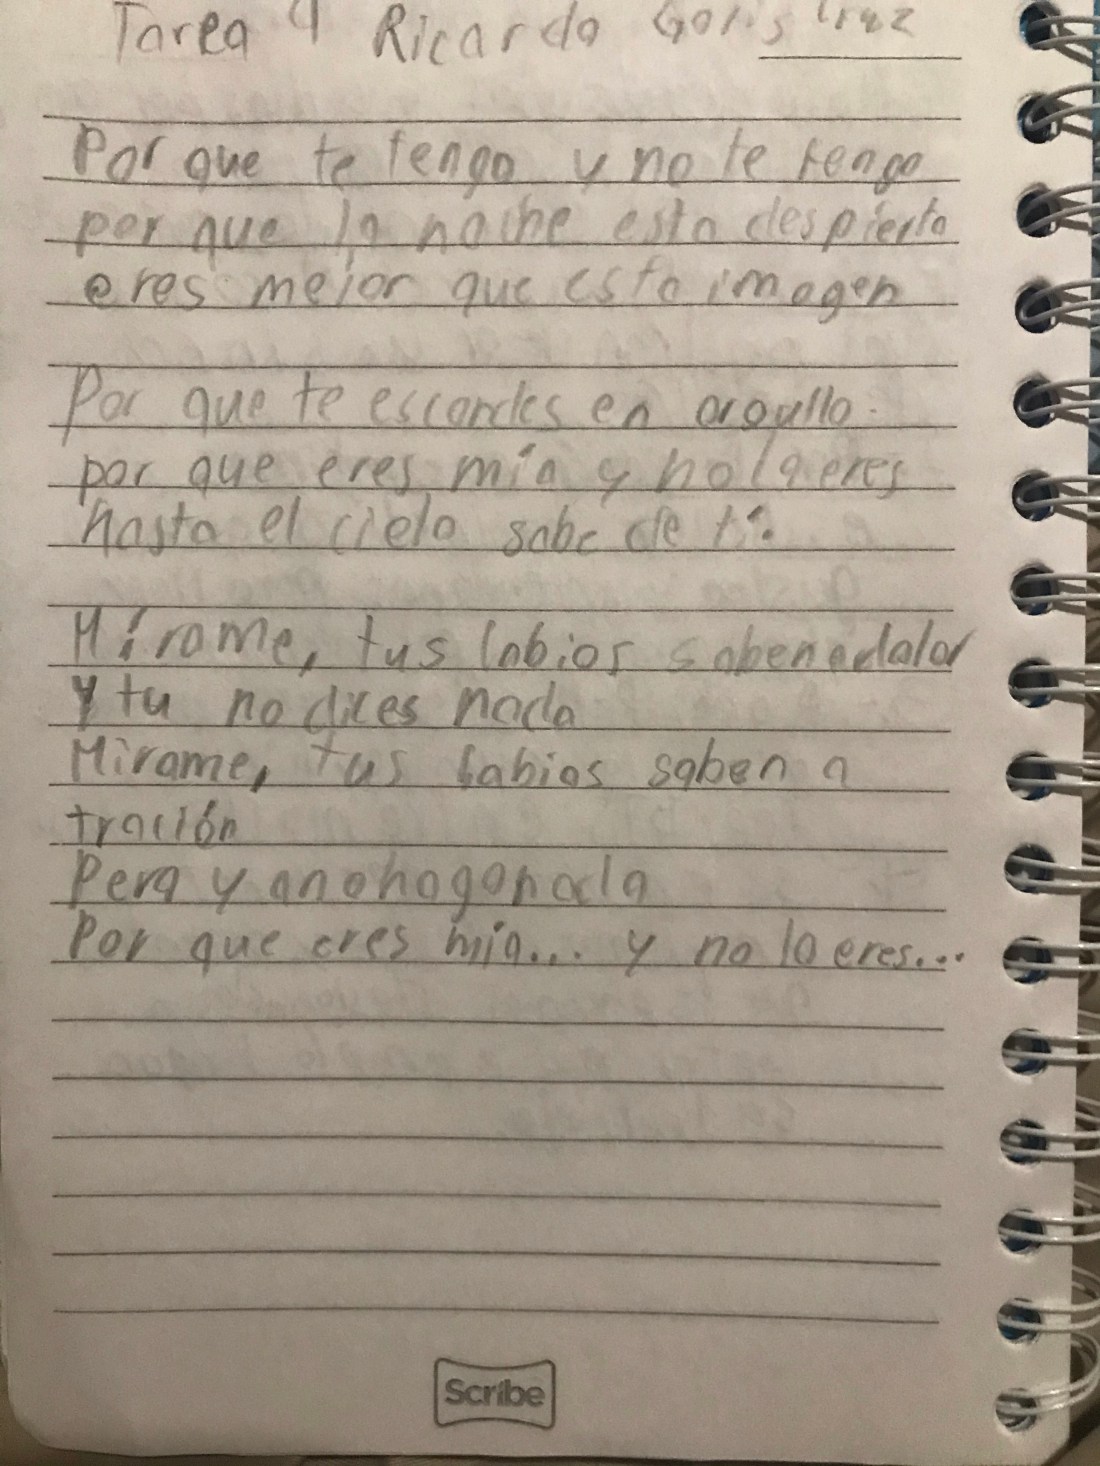 Tarea 4 Ricardo Goris Cruz
Por que te tengo y no te tengo
por que la noche esta despierta
eres mejor que esta imagen
Por que te escondes en orgullo.
por que eres mía y no la eres
hasta el cielo sabe de tí.
Mírame, tus labios saben a dolor
y tu no dices nada
Mirame, tus labios saben a
tración
Pero y a no hago nada
Por que eres mía... y no lo eres...
Scribe